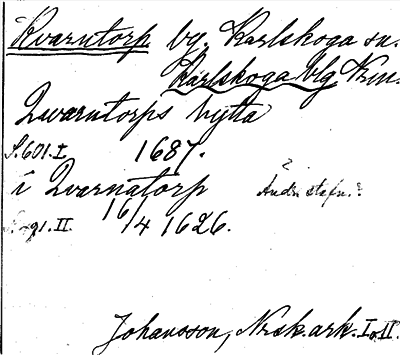 Kvarntorp by, Karlskoga sn.
Karlskoga blg Nm.
Qwarntorps hytta
S. 601. I 1687.
i Qvarnatorp
91. II. 16/4 1626.
Johansson, Nrsk. ark. I o. II.